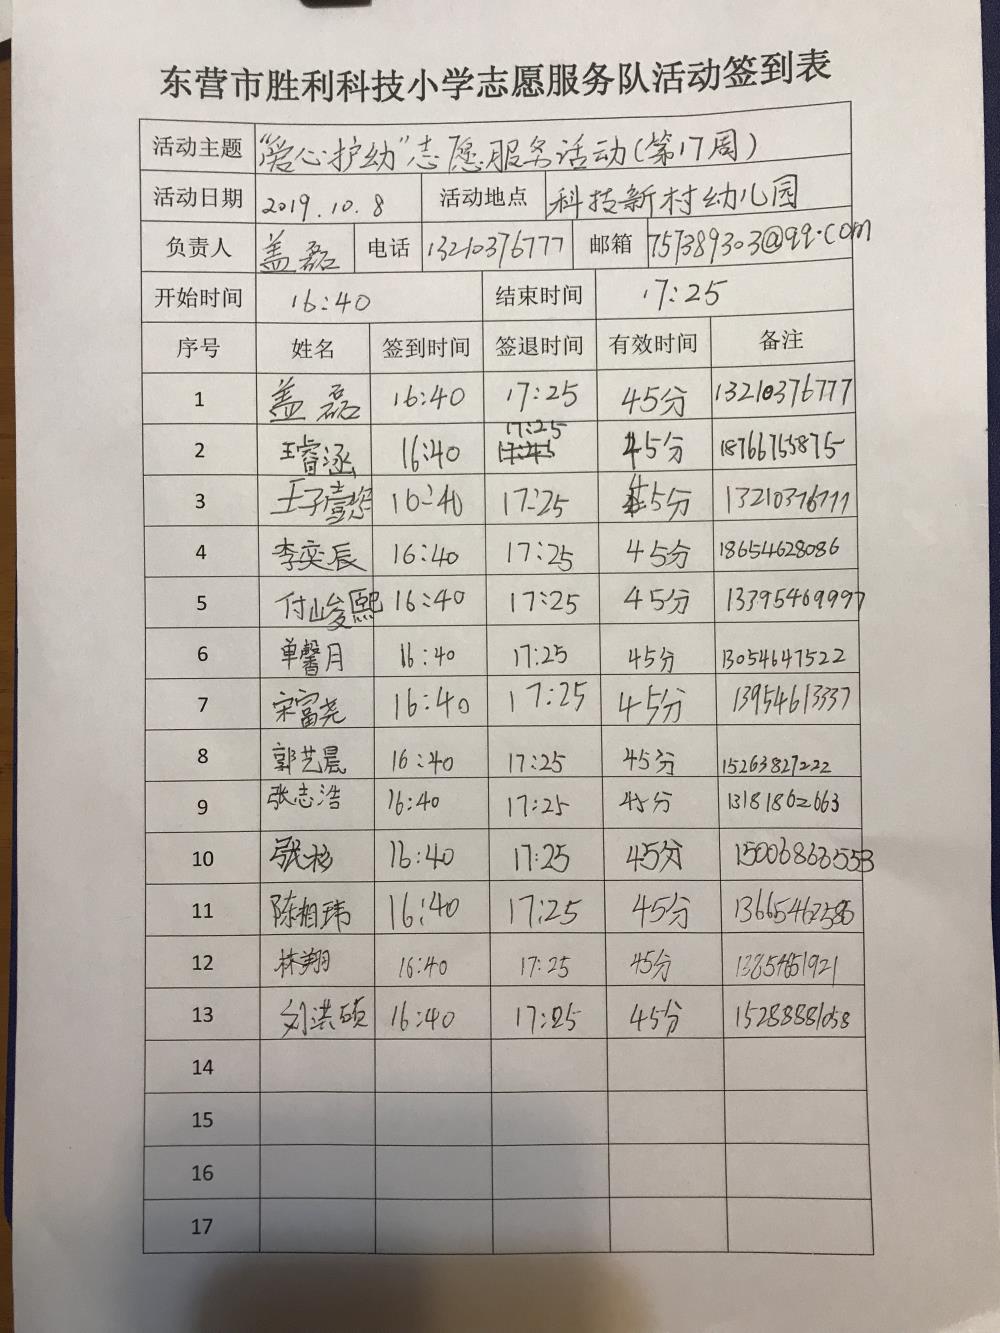 东营市胜利科技小学志愿服务队活动签到表
活动主题 “爱心护幼”志愿服务活动(第17周)
活动日期 2019.10.8 活动地点 科技新村幼儿园
负责人 盖磊 电话 13210376777 邮箱 757389303@qq.com
开始时间 16:40 结束时间 17:25
序号 姓名 签到时间 签退时间 有效时间 备注
1 盖磊 16:40 17:25 45分 13210376777
2 王睿涵 16:40 17:25 45分 18766753875
3 王子壹 16:40 17:25 45分 13210376777
4 李奕辰 16:40 17:25 45分 18654628086
5 付峻熙 16:40 17:25 45分 13395469997
6 单馨月 16:40 17:25 45分 13054647522
7 宋富尧 16:40 17:25 45分 13954613337
8 郭艺晨 16:40 17:25 45分 15263827222
9 张志浩 16:40 17:25 45分 13181862663
10 张杉 16:40 17:25 45分
11 陈相玮 16:40 17:25 45分
12 林翔 16:40 17:25 45分
13 刘洪硕 16:40 17:25 45分
14
15
16
17